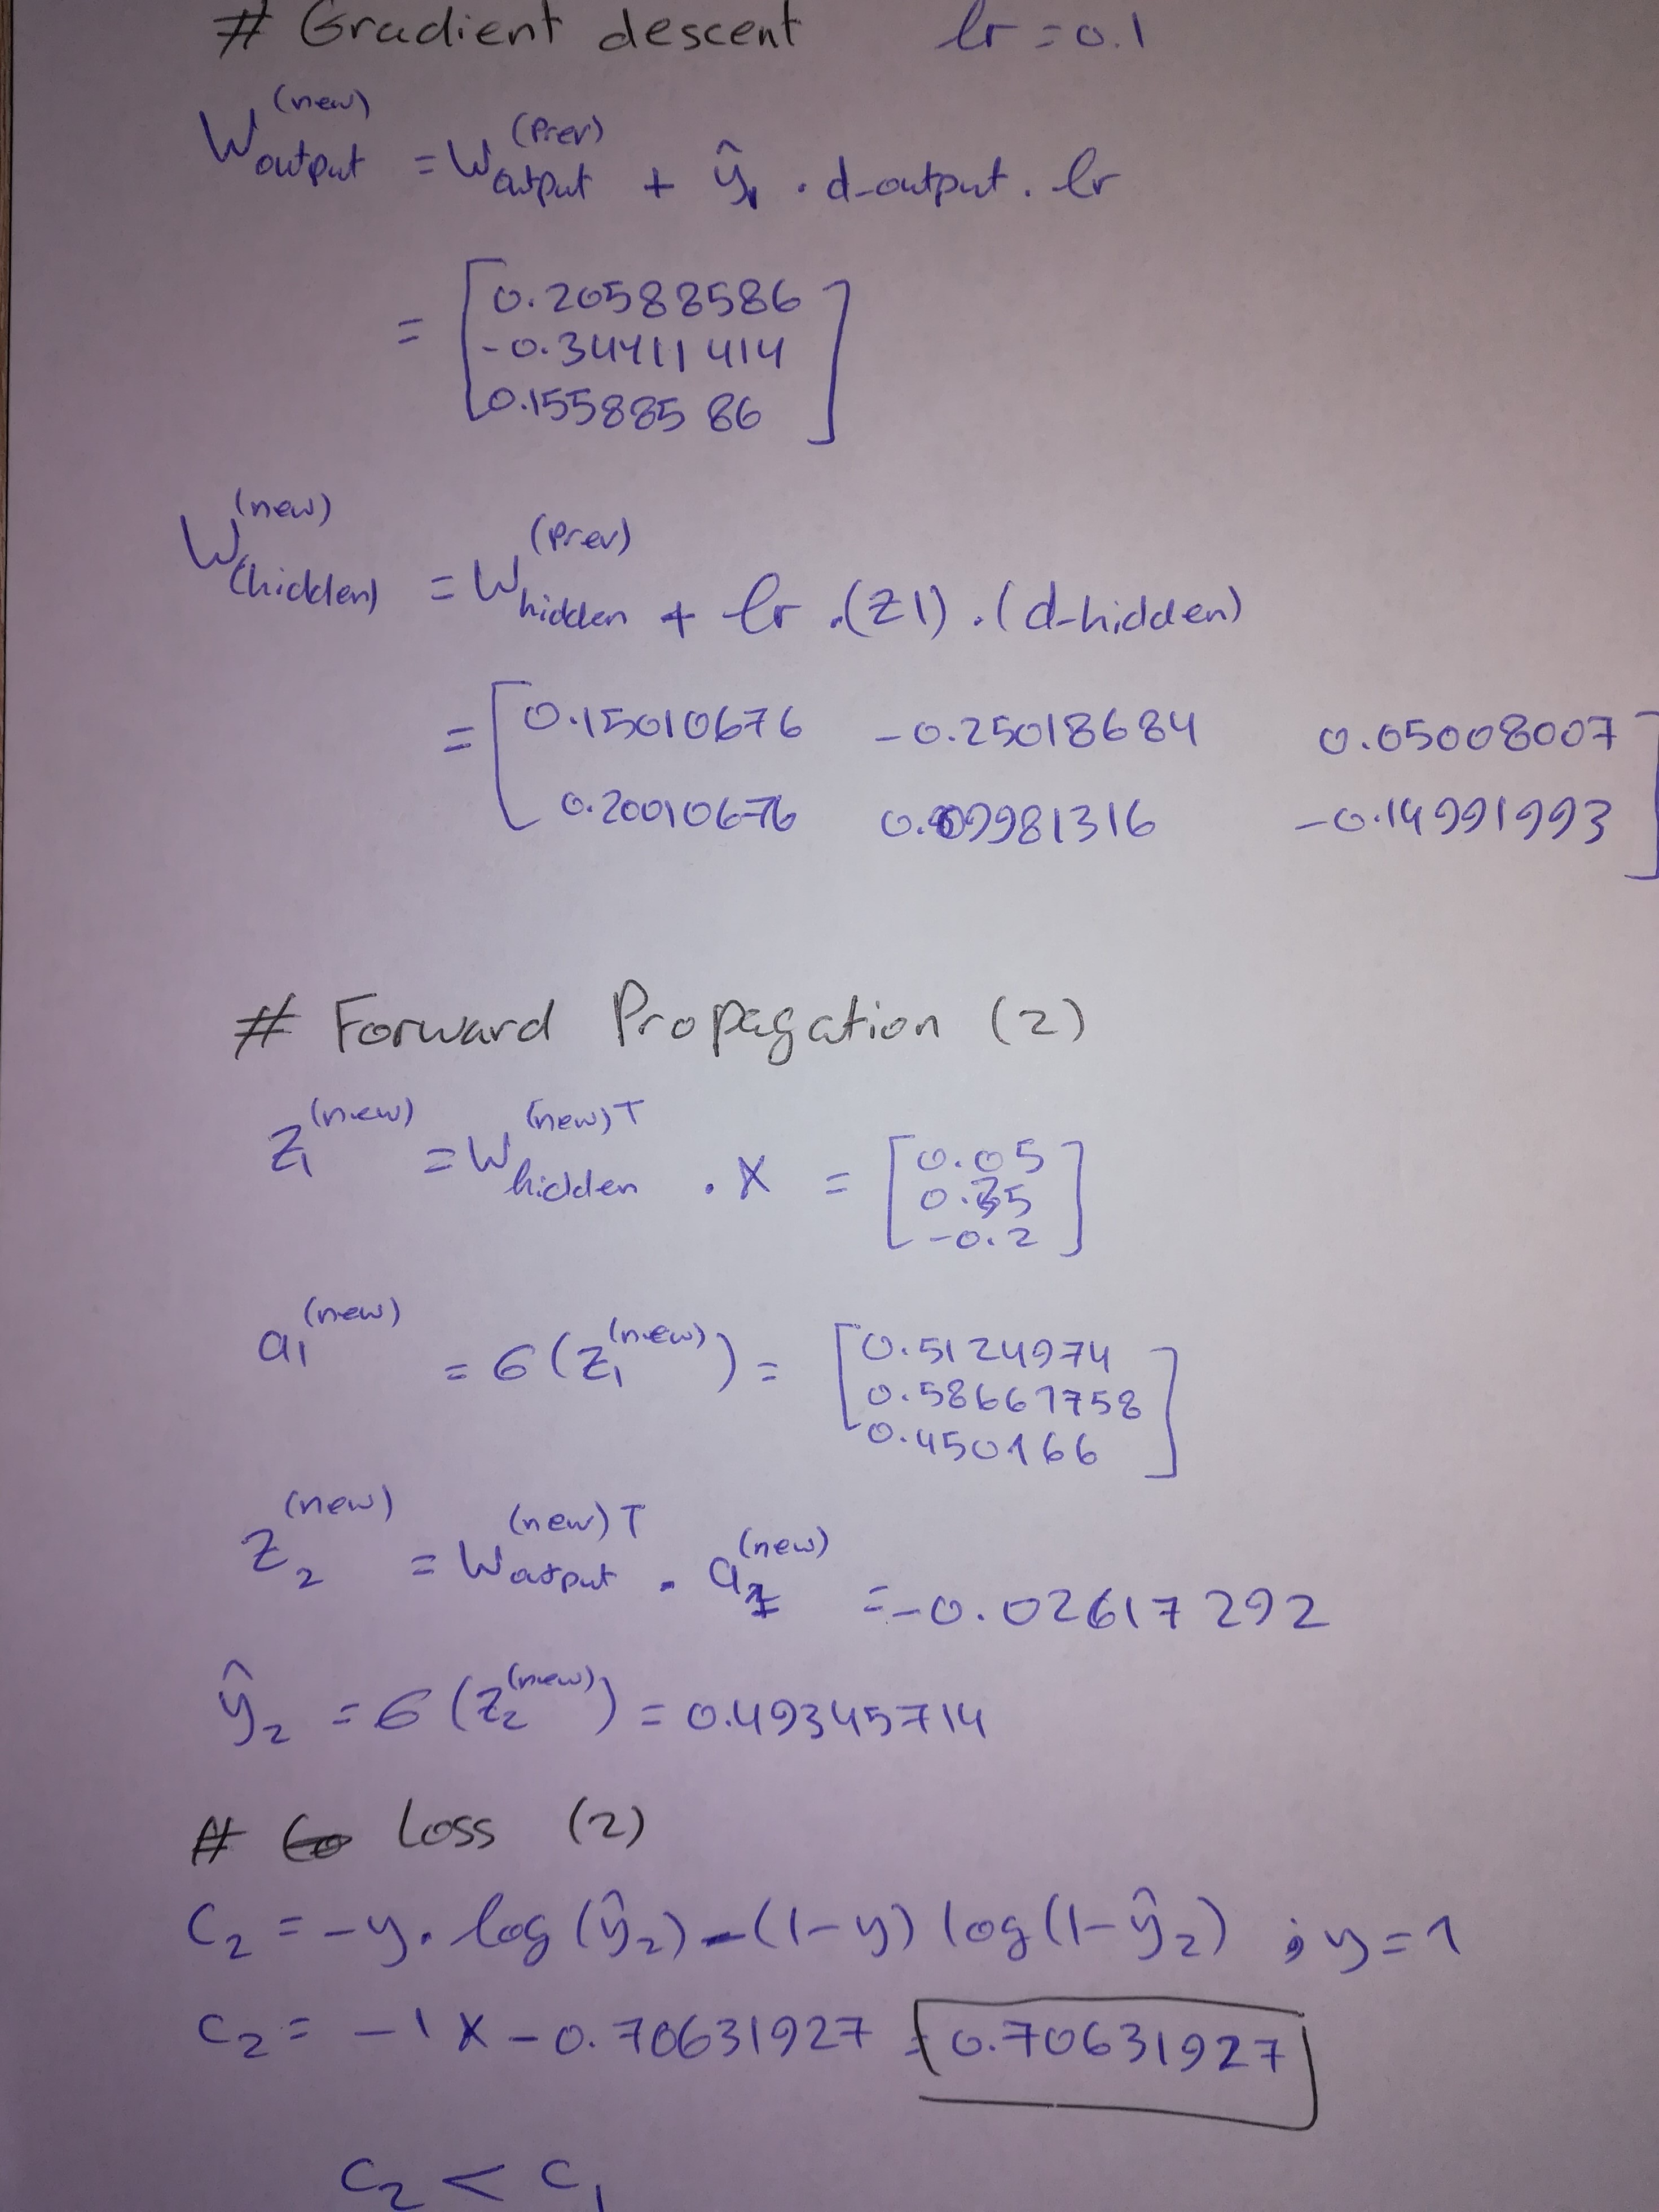 # Gradient descent lr = 0.1
W_output^(new) = W_output^(Prev) + ŷ₁ . d_output . lr
= [0.20588586
-0.34411414
0.15588586]
W_(hidden)^(new) = W_hidden^(Prev) + lr .(Z1) .(d_hidden)
= [0.15010676 -0.25018684 0.05008007
0.20010676 0.09981316 -0.14991993]
# Forward Propagation (2)
Z₁^(new) = W_hidden^(new)T . X = [0.05
0.35
-0.2]
a₁^(new) = σ(Z₁^(new)) = [0.5124974
0.58661758
0.450166]
Z₂^(new) = W_output^(new)T . a₁^(new) = -0.02617292
ŷ₂ = σ(Z₂^(new)) = 0.49345714
# Loss (2)
C₂ = -y. log(ŷ₂) - (1-y) log(1-ŷ₂) ; y=1
C₂ = -1 x -0.70631927 = 0.70631927
C₂ < C₁